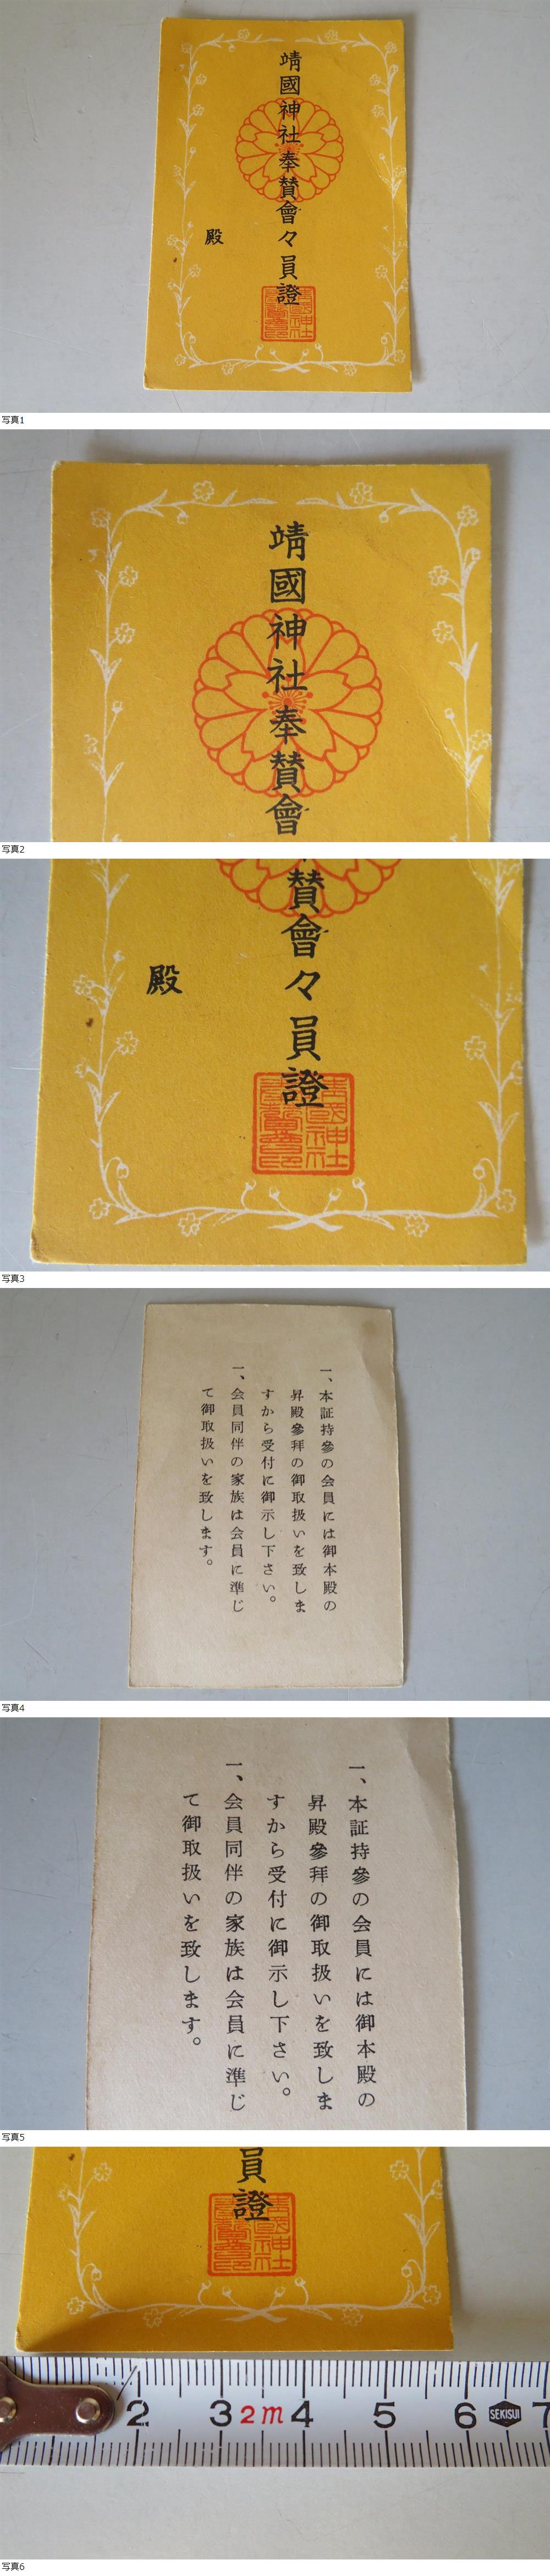 靖國神社奉賛會々員證
殿
写真1
靖國神社奉賛會
写真2
賛會々員證
殿
写真3
一、本証持參の会員には御本殿の
昇殿參拜の御取扱いを致しま
すから受付に御示し下さい。
一、会員同伴の家族は会員に準じ
て御取扱いを致します。
写真4
一、本証持參の会員には御本殿の
昇殿參拜の御取扱いを致しま
すから受付に御示し下さい。
一、会員同伴の家族は会員に準じ
て御取扱いを致します。
写真5
員證
2 3 2m 4 5 6 SEKISUI 7
写真6